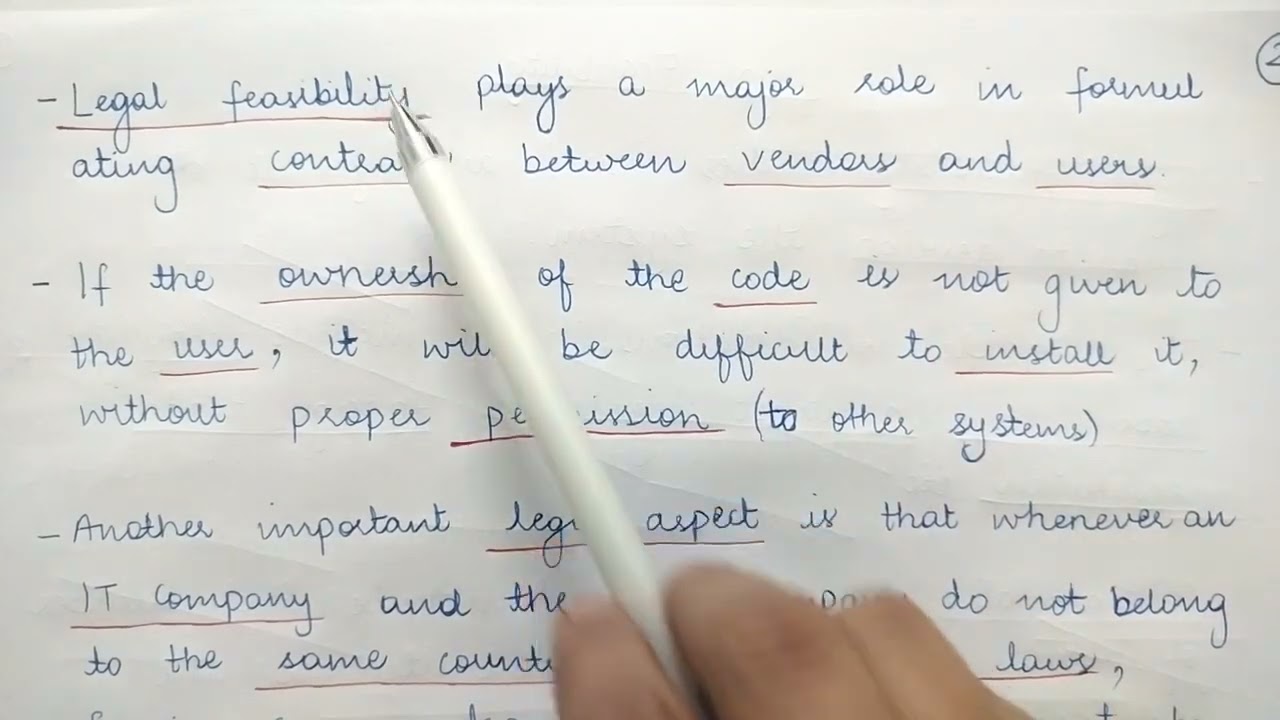 - Legal feasibility plays a major role in formul
ating between vendors and users.
- If the of the code is not given to
the user, it be difficult to install it,
without proper permission (to other systems)
- Another important legal aspect is that whenever an
IT company and the do not belong
to the same laws,